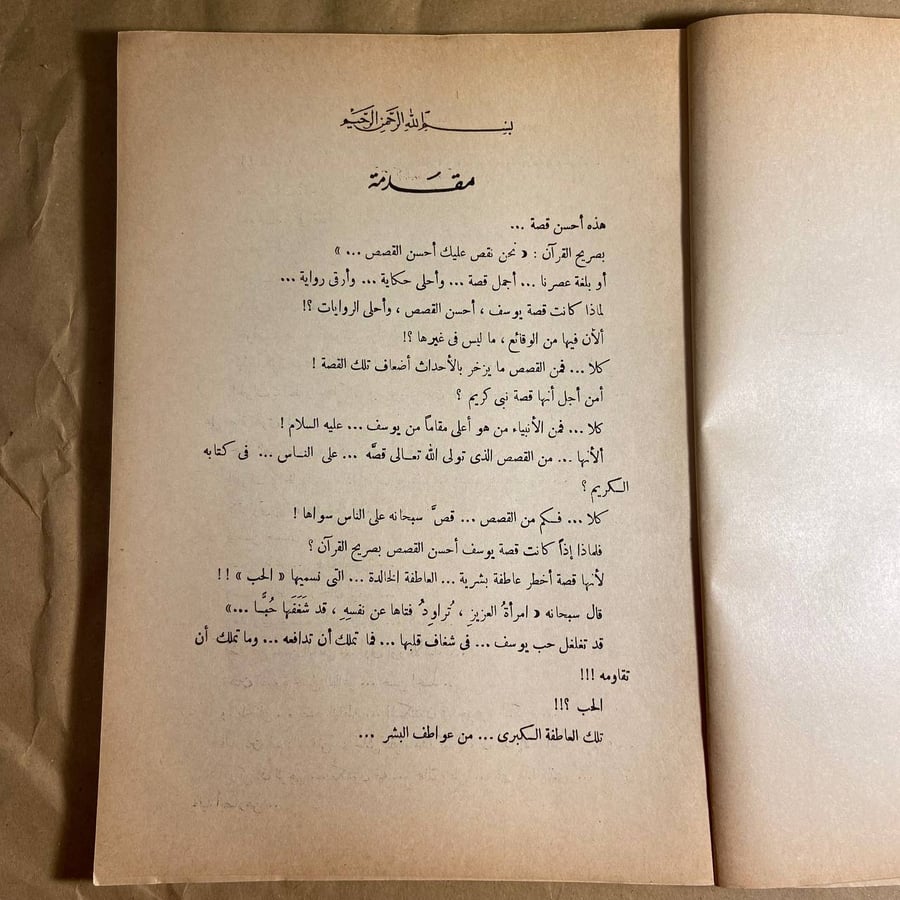 بسم الله الرحمن الرحيم
مقدمة
هذه أحسن قصة ...
بصريح القرآن : « نحن نقص عليك أحسن القصص ... »
أو بلغة عصرنا ... أجمل قصة ... وأحلى حكاية ... وأرقى رواية ...
لماذا كانت قصة يوسف ، أحسن القصص ، وأحلى الروايات ؟!
ألأن فيها من الوقائع ، ما ليس فى غيرها ؟!
كلا ... فمن القصص ما يزخر بالأحداث أضعاف تلك القصة !
أمن أجل أنها قصة نبى كريم ؟
كلا ... فمن الأنبياء من هو أعلى مقاماً من يوسف ... عليه السلام !
ألأنها ... من القصص الذى تولى الله تعالى قصَّه ... على الناس ... فى كتابه
الكريم ؟
كلا ... فكم من القصص ... قصَّ سبحانه على الناس سواها !
فلماذا إذاً كانت قصة يوسف أحسن القصص بصريح القرآن ؟
لأنها قصة أخطر عاطفة بشرية ... العاطفة الخالدة ... التى نسميها « الحب » !!
قال سبحانه « امرأةُ العزيزِ ، تُراوِدُ فتاها عن نفسِهِ ، قد شَغَفَها حُبًّا ... »
قد تغلغل حب يوسف ... فى شغاف قلبها ... فما تملك أن تدافعه ... وما تملك أن
تقاومه !!!
الحب ؟!!
تلك العاطفة الكبرى ... من عواطف البشر ...